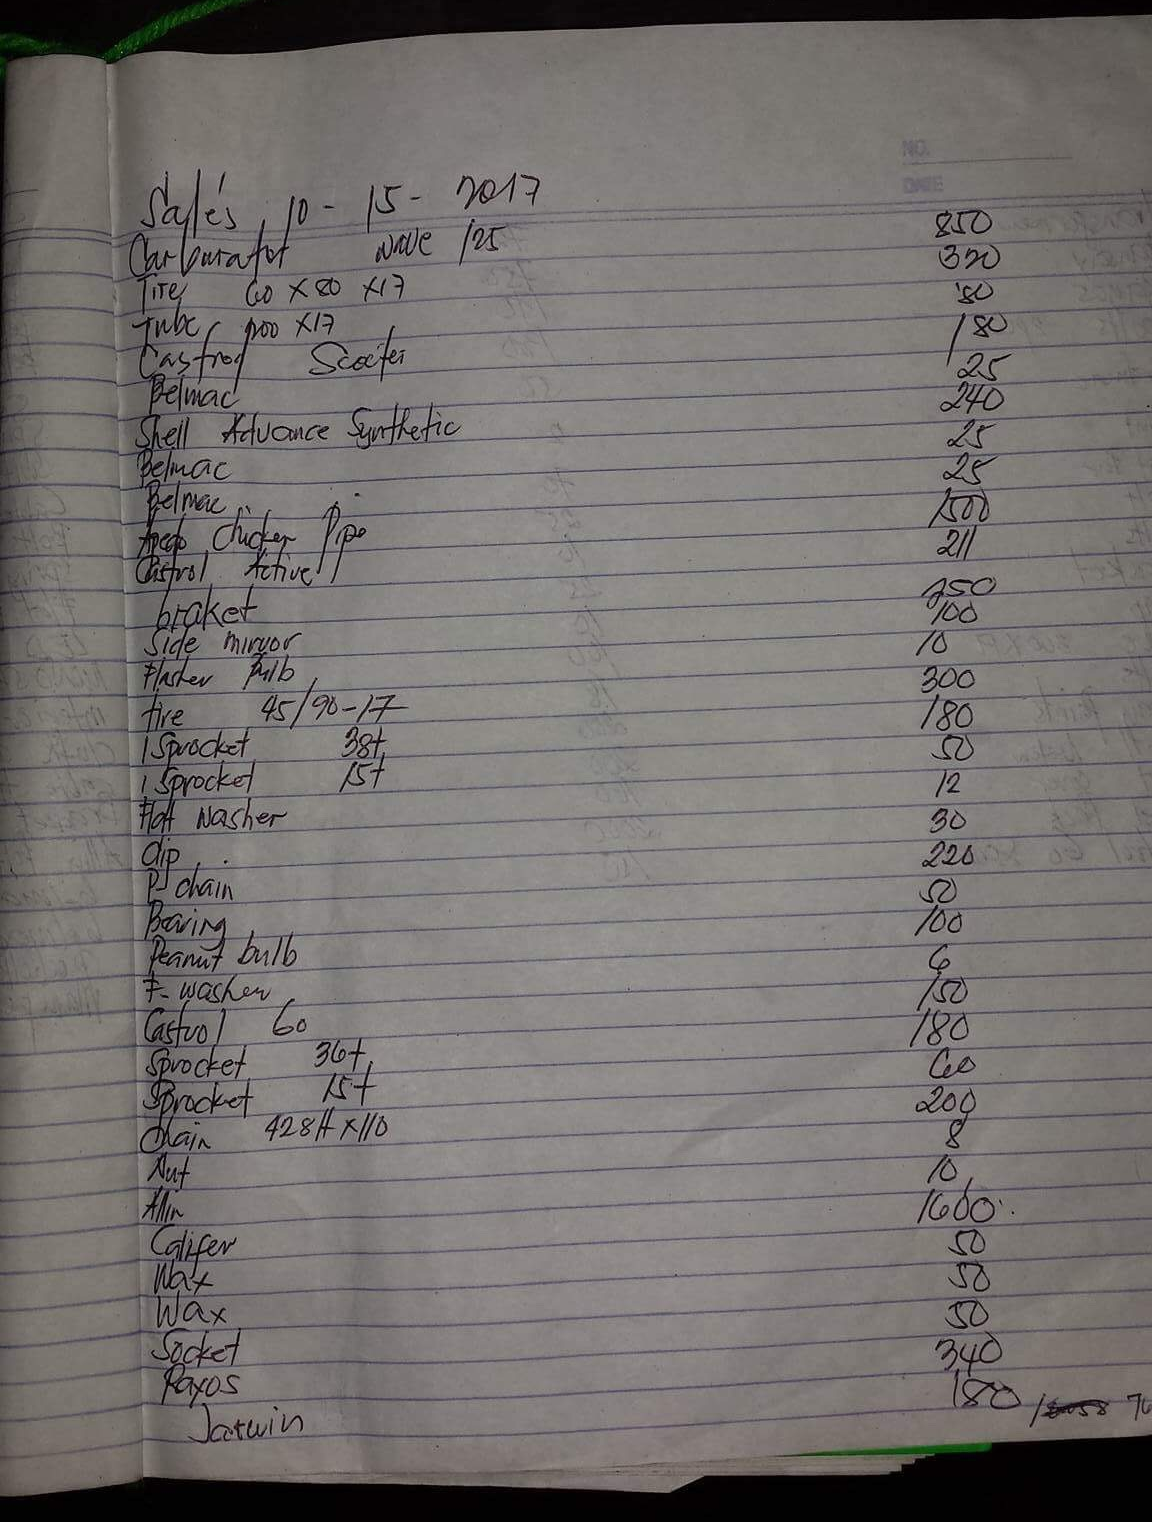 NO.
DATE
Sales 10 - 15 - 2017
Carburator wave 125 850
Tire 60 x 80 x 17 320
Tube 200 x 17 80
Castrol Scooter 180
Belmac 25
Shell Advance Synthetic 240
Belmac 25
Belmac 25
Chicken Pipe 1500
Castrol Active 211
braket 250
Side mirror 100
Flasher Bulb 10
tire 45/90-17 300
1 Sprocket 38t 180
1 Sprocket 15t 50
Flat washer 12
Clip 30
P- chain 220
Bearing 50
Peanut bulb 100
F- washer 6
Castrol 60 150
Sprocket 36t 180
Sprocket 15t 60
Chain 428H x 110 200
Nut 8
Allin 10
Califer 1600
Wax 50
Wax 50
Socket 50
Paxos 340
Jatwin 180